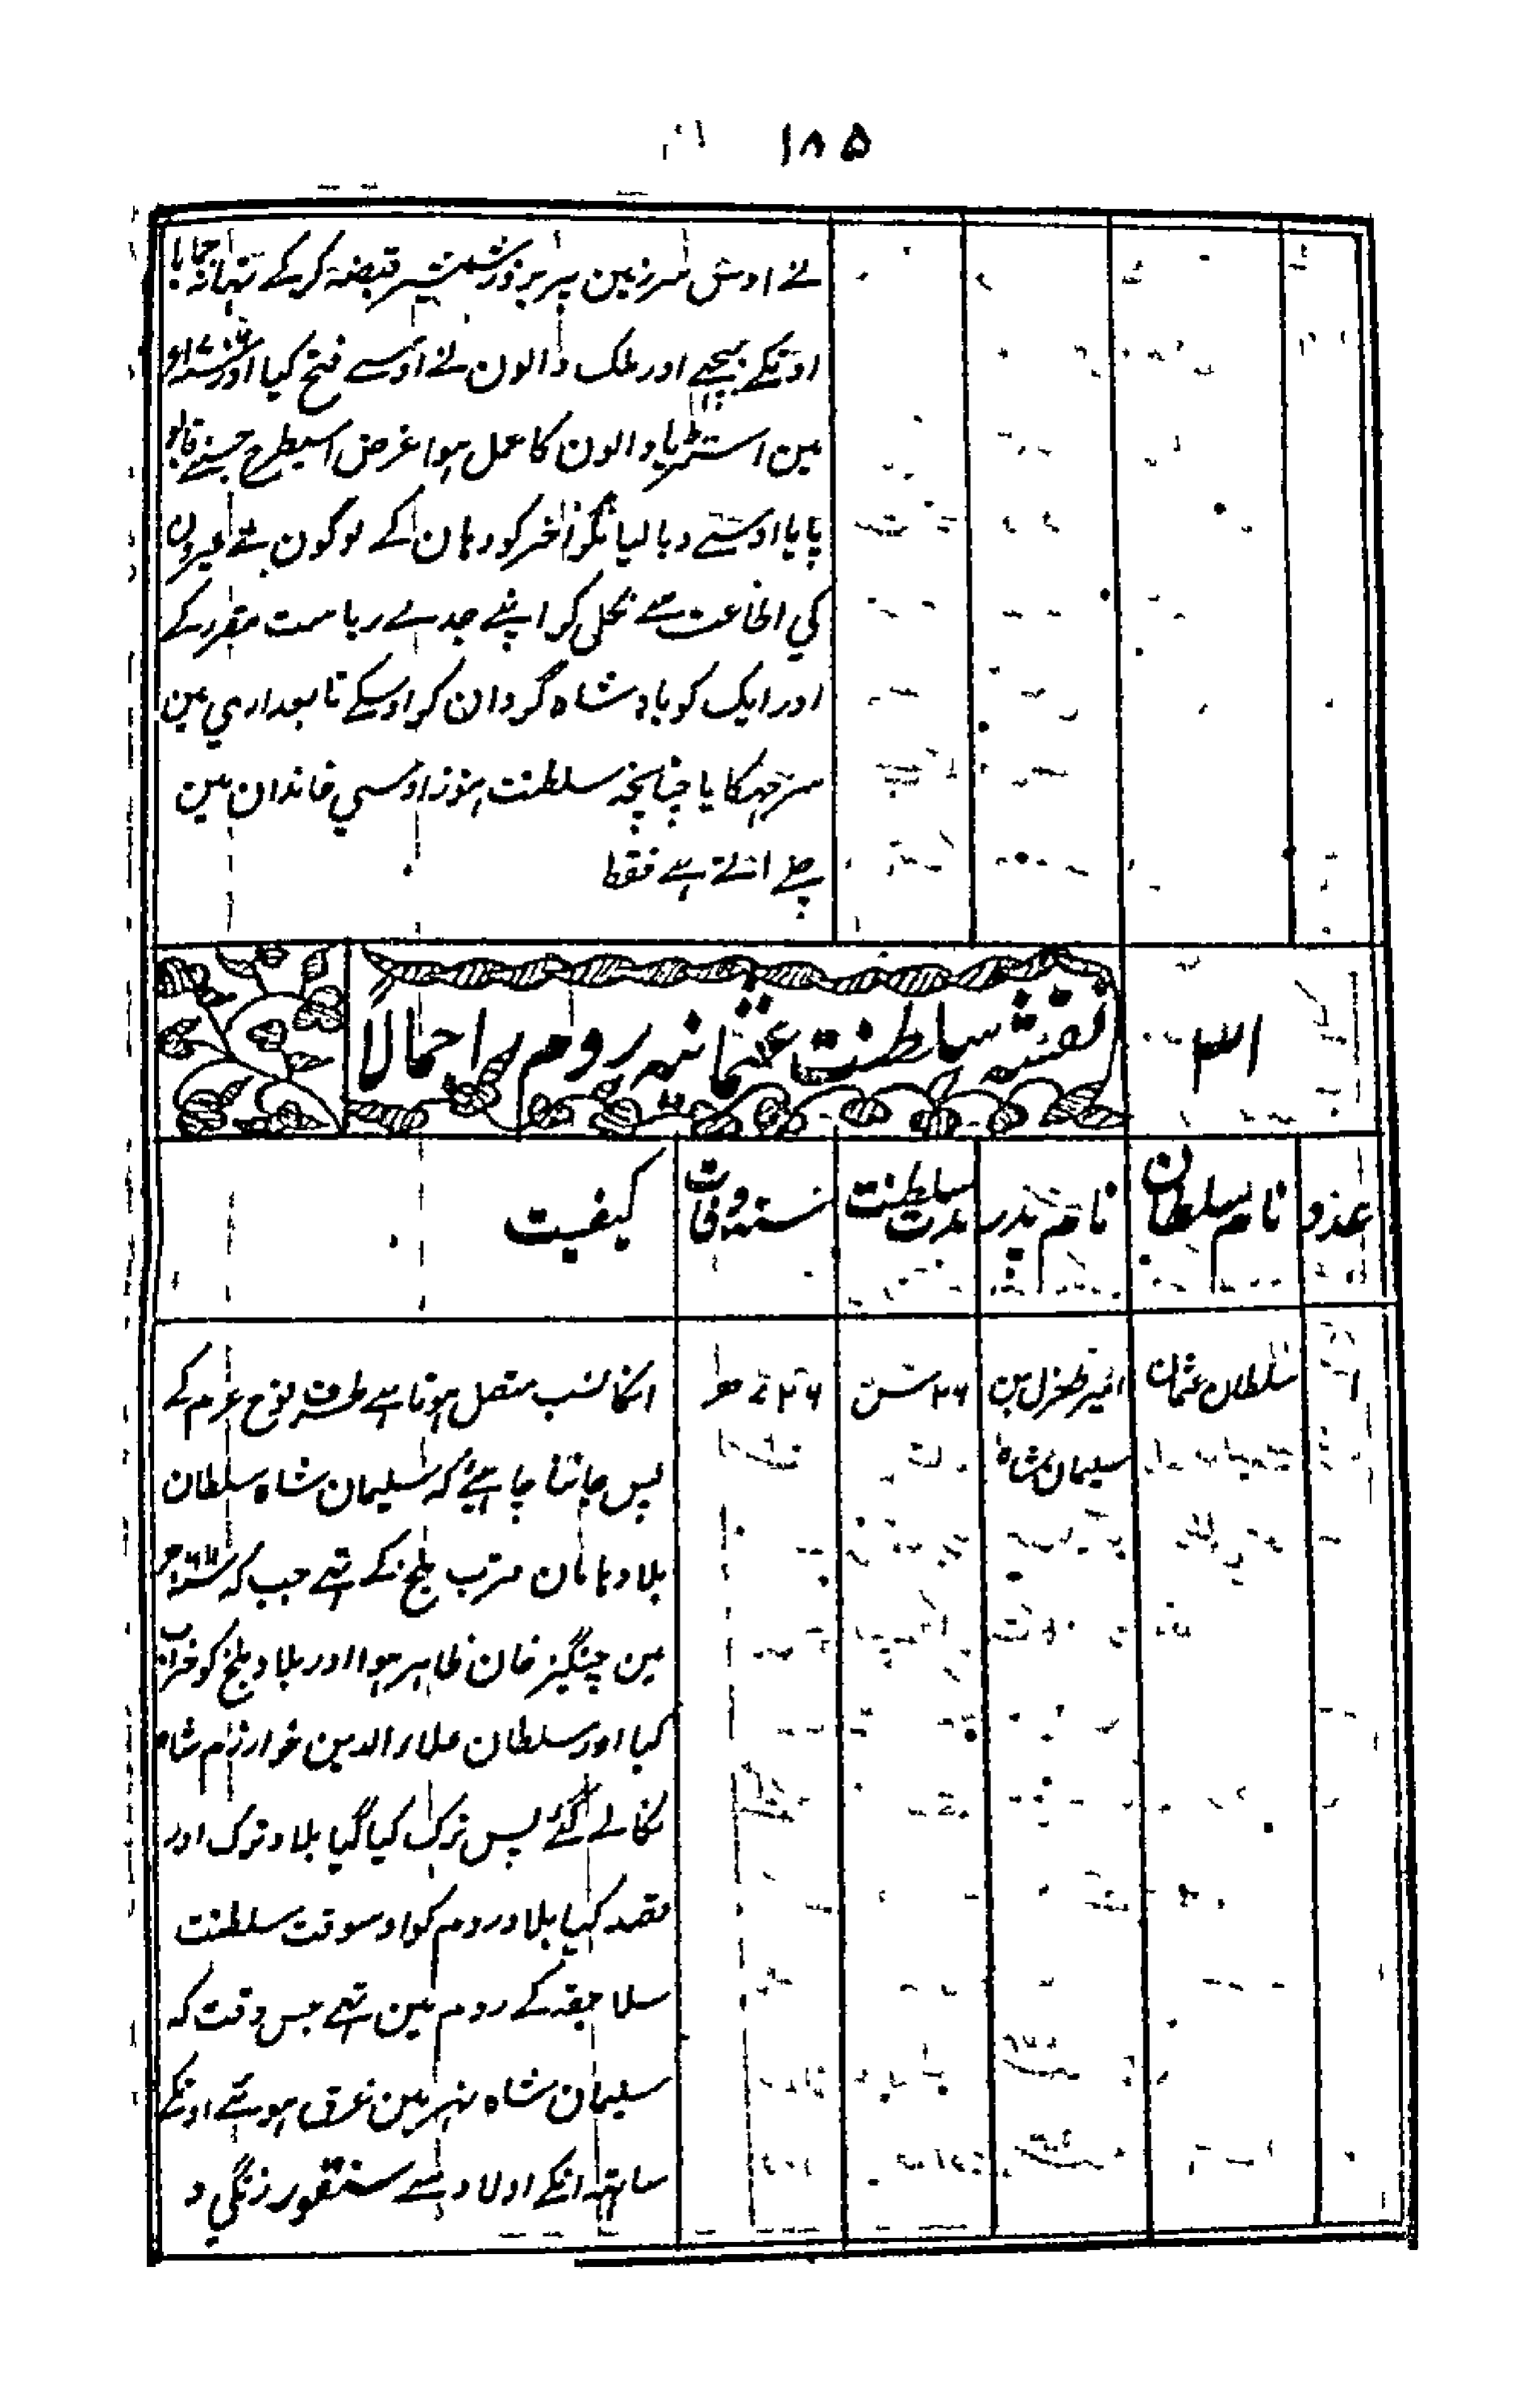 ۱۸۵
نے اوس سرزمین پر بزور شمشیر قبضہ کر کے تہانہ جمایا
اونکے پیچھے اور ملک والون نے اوسے فتح کیا اور
مین اسٹریا والون کا عمل ہوا غرض اسیطرح جسنے قابو
پایا اوسنے دبا لیا مگر آخر کو وہان کے لوگون نے غیرون
کي اطاعت سے نکل کر اپنے جدے ریاست مقرر کے
اور ایک کو بادشاہ گردان کر اوسکے تابعداري مین
سر جہکایا چنانچہ سلطنت ہنوز اوسي خاندان مین
چلے اتے ہے فقط
نقشہ سلطنت عثمانیہ روم اجمالاً
عدد نام سلطان نام پدر مدت سلطنت سنہ وفات کیفیت
۱ سلطان عثمان امیر طغرل بن ۲۶ سن ۷۲۶ انکا نسب متصل ہوتا ہے طرف نوح عم کے
سلیمان شاہ پس جاننا چاہیئے کہ سلیمان شاہ سلطان
بلاد ماہان قرب بلخ کے تہے جب کہ
مین چنگیز خان ظاہر ہوا اور بلاد بلخ کو خراب
کیا اور سلطان علاء الدین خوارزم شاہ
نکالے گئے پس ترک کیا گیا بلاد ترک اور
قصد کیا بلاد روم کو اوسوقت سلطنت
سلاجقہ کے روم مین تہے جس وقت کہ
سلیمان شاہ نہر مین غرق ہوئے اونکے
ساتھ انکے اولاد سے سنقور زنگي و